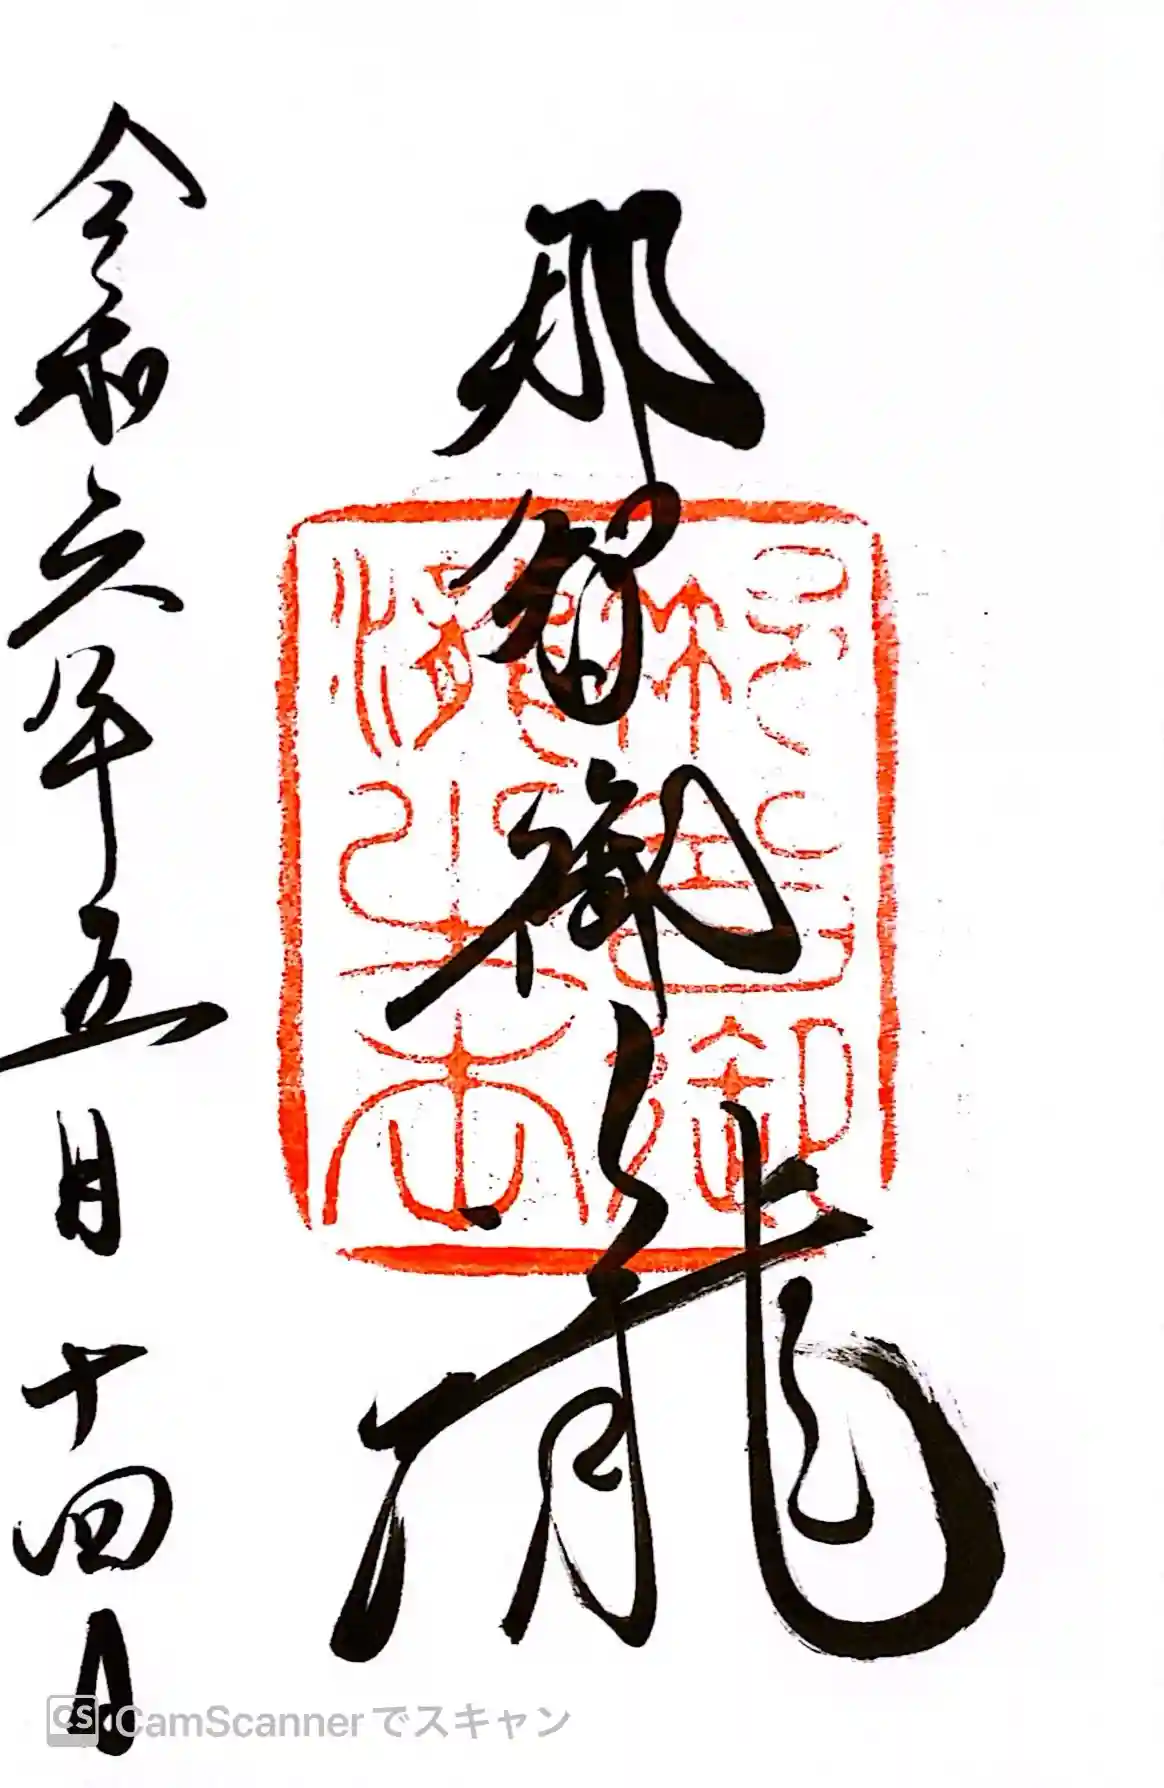 那智御瀧
令和六年五月十四日
CS CamScannerでスキャン